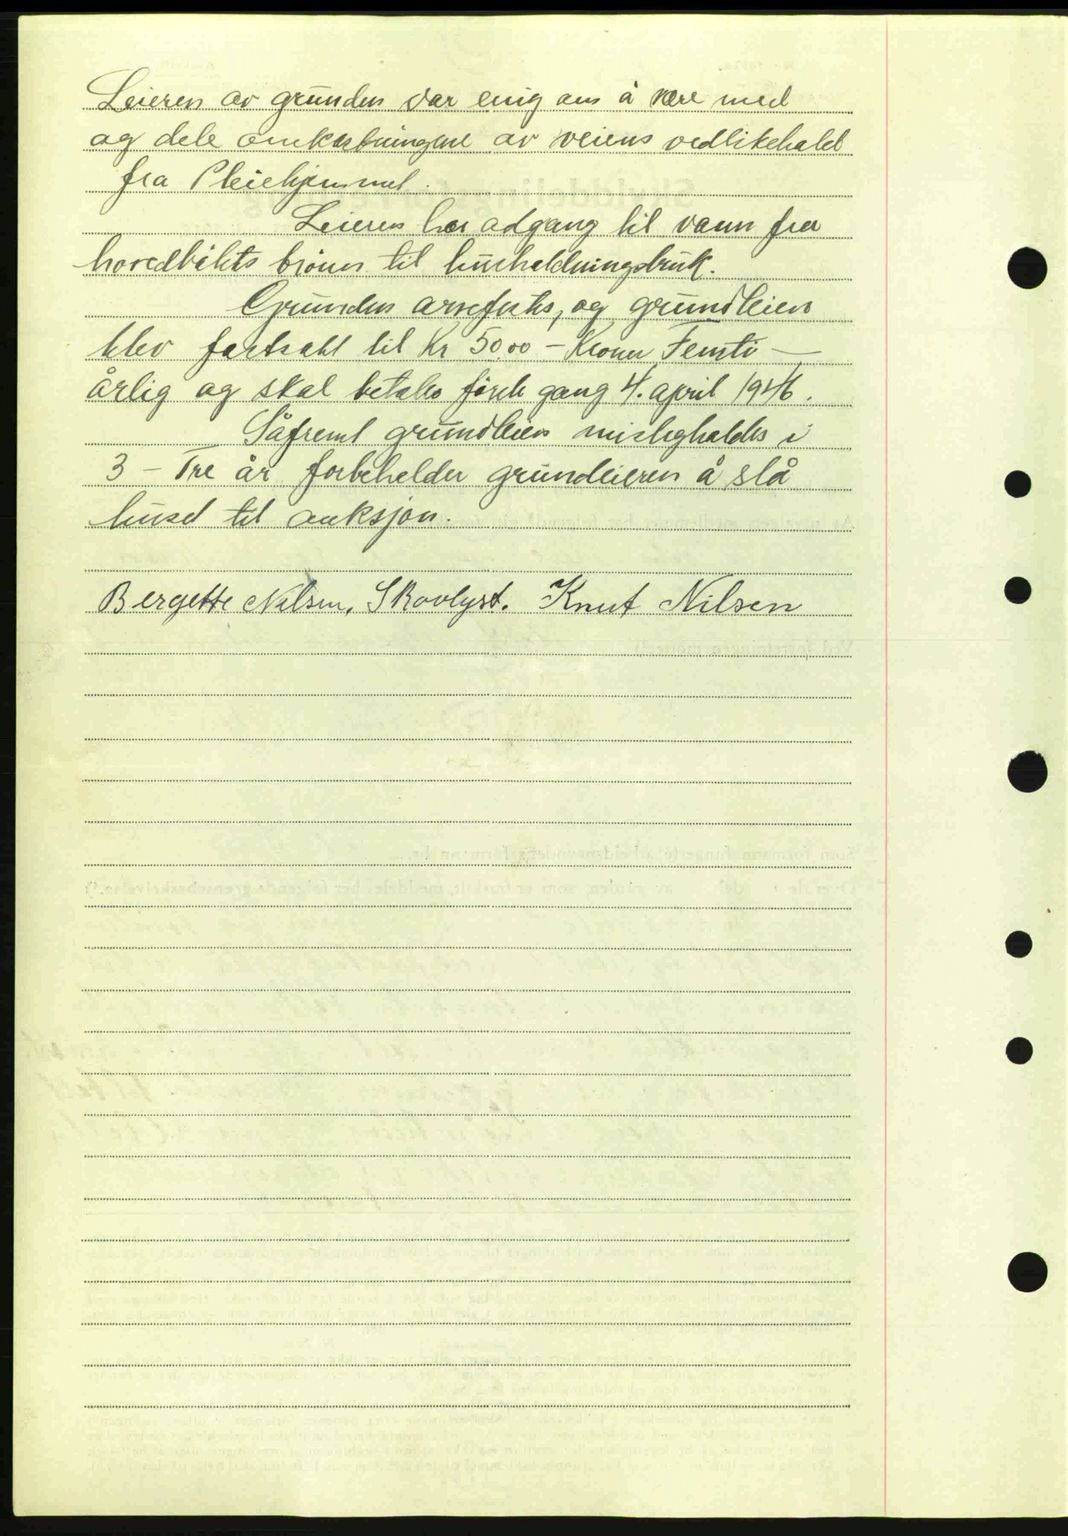 Leieren av grunden var enig om å være med
og dele omkostningene av veiens vedlikehold
fra Pleiehjemmet.
Leieren har adgang til vann fra
hovedbølets brønn til husholdningsbruk.
Grunden arvefestes, og grundleien
blev fastsatt til Kr 50.00 – Kroner Femti —
årlig og skal betales første gang 4. april 1946.
Såfremt grundleien misligholdes i
3 – Tre år forbeholder grundeieren å slå
huset til auksjon.
Bergette Nilsen, Skovlyst. Knut Nilsen